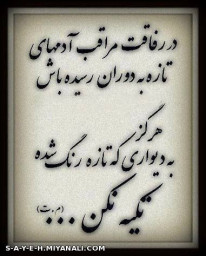 در رفاقت مراقب آدمهای
تازه به دوران رسیده باش
هرگز
به دیواری که تازه رنگ شده
تکیه نکن ...
(م.ت)
S-A-Y-E-H.MIYANALI.COM